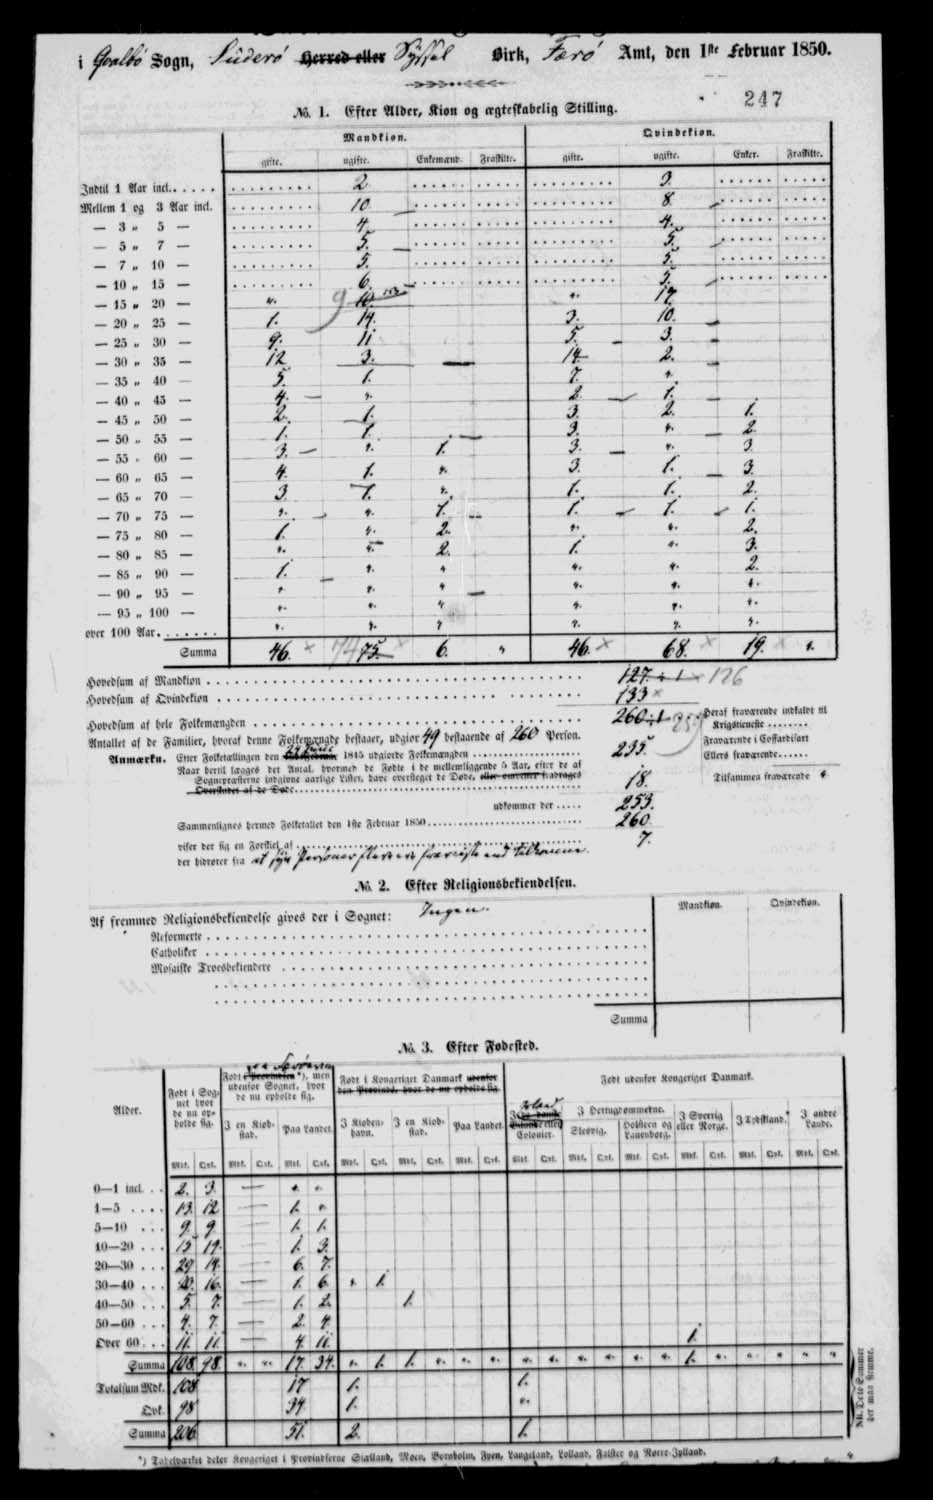 i Qvalbø Sogn, Suderø Herred eller Syssel Birk, Færø Amt, den 1ste Februar 1850.
247
No. 1. Efter Alder, Kion og ægteskabelig Stilling.
Mandkion. Qvindekion.
gifte. ugifte. Enkemænd. Fraskilte. gifte. ugifte. Enker. Fraskilte.
Indtil 1 Aar incl. 2 3.
Mellem 1 og 3 Aar incl. 10 8.
— 3 „ 5 — 4. 4.
— 5 „ 7 — 5. 5.
— 7 „ 10 — 5. 5.
— 10 „ 15 — 6. 5.
— 15 „ 20 — „ 9 10. „ 17.
— 20 „ 25 — 1. 14. 3. 10.
— 25 „ 30 — 9. 11 5. 3.
— 30 „ 35 — 12 3. 14 2.
— 35 „ 40 — 5. 1. 7. „
— 40 „ 45 — 4. „ 2. 1.
— 45 „ 50 — 2. 1. 3. 2. 1.
— 50 „ 55 — 1. 1. 3. „ 2.
— 55 „ 60 — 3. „ 1. 3. „ 3.
— 60 „ 65 — 4. 1. „ 3. 1. 3.
— 65 „ 70 — 3. 1. „ 1. 1. 2.
— 70 „ 75 — „ „ 1. 1. 1. 1.
— 75 „ 80 — 1. „ 2. „ „ 2.
— 80 „ 85 — „ „ 2. 1. „ 3.
— 85 „ 90 — 1. „ „ „ „ 2.
— 90 „ 95 — „ „ „ „ „ „
— 95 „ 100 — „ „ „ „ „ „
over 100 Aar. „ „ „ „ „ „
Summa 46. 74 75. 6. „ 46. 68. 19. „
Hovedsum af Mandkion 127. ÷ 1 126
Hovedsum af Qvindekion 133
Hovedsum af hele Folkemængden 260 ÷ 1 259
Deraf fraværende indkaldt til Krigstieneste
Antallet af de Familier, hvoraf denne Folkemængde bestaaer, udgior 49 bestaaende af 260 Person.
Fraværende i Coffardifart
Anmærkn. Efter Folketællingen den 1845 udgiorde Folkemængden 235.
Ellers fraværende
Naar hertil lægges det Antal, hvormed de Fødte i de mellemliggende 5 Aar, efter de af
Sognepræsterne indgivne aarlige Lister, have oversteget de Døde, eller omvendt fradrages
Overskudet af de Døde 18.
Tilsammen fraværende „
udkommer der 253.
Sammenlignes hermed Folketallet den 1ste Februar 1850 260.
viser der sig en Forskiel af 7.
der hidrører fra at syv Personer flere ere end tilkomne.
No. 2. Efter Religionsbekiendelsen.
Mandkion. Qvindekion.
Af fremmed Religionsbekiendelse gives der i Sognet: Ingen.
Reformerte
Catholiker
Mosaiske Troesbekiendere
Summa
No. 3. Efter Fødested.
Alder.
Født i Sognet hvor de nu opholde sig.
Født i Provindsen *), men udenfor Sognet, hvor de nu opholde sig.
Født i Kongeriget Danmark udenfor den Provinds, hvor de nu opholde sig.
Født udenfor Kongeriget Danmark.
I en Kiobstad. Paa Landet. I Kiobenhavn. I en Kiobstad. Paa Landet. Colonier. I Hertugdommerne. Slesvig. Holsteen og Lauenborg. I Sverrig eller Norge. I Tydskland. I andre Lande.
Mdk. Qvk. Mdk. Qvk. Mdk. Qvk. Mdk. Qvk. Mdk. Qvk. Mdk. Qvk. Mdk. Qvk. Mdk. Qvk. Mdk. Qvk. Mdk. Qvk. Mdk. Qvk. Mdk. Qvk.
0—1 incl. 2. 3. — „ „
1—5 13. 12 — 1. „
5—10 9. 9. — 1. 1.
10—20 15 19. — 1. 3.
20—30 29 14. — 6. 7.
30—40 20. 16. — 1. 6. „ 1.
40—50 5. 7. — 1. 2. 1.
50—60 4. 7. — 2. 4.
Over 60 11. 11. — 4. 11. 1.
Summa 108. 98. „ „ 17. 34. „ 1. 1. „ „ „ „ „ „ „ „ „ 1. „ „ „ „ „
Totalsum Mdk. 108 17 1. 1.
Qvk. 98 34. 1. „
Summa 206 51. 2. 1.
NB. De to Summer her maa stemme.
*) Tabelværket deler Kongeriget i Provindserne Siælland, Møen, Bornholm, Fyen, Langeland, Lolland, Falster og Nørre-Jylland.